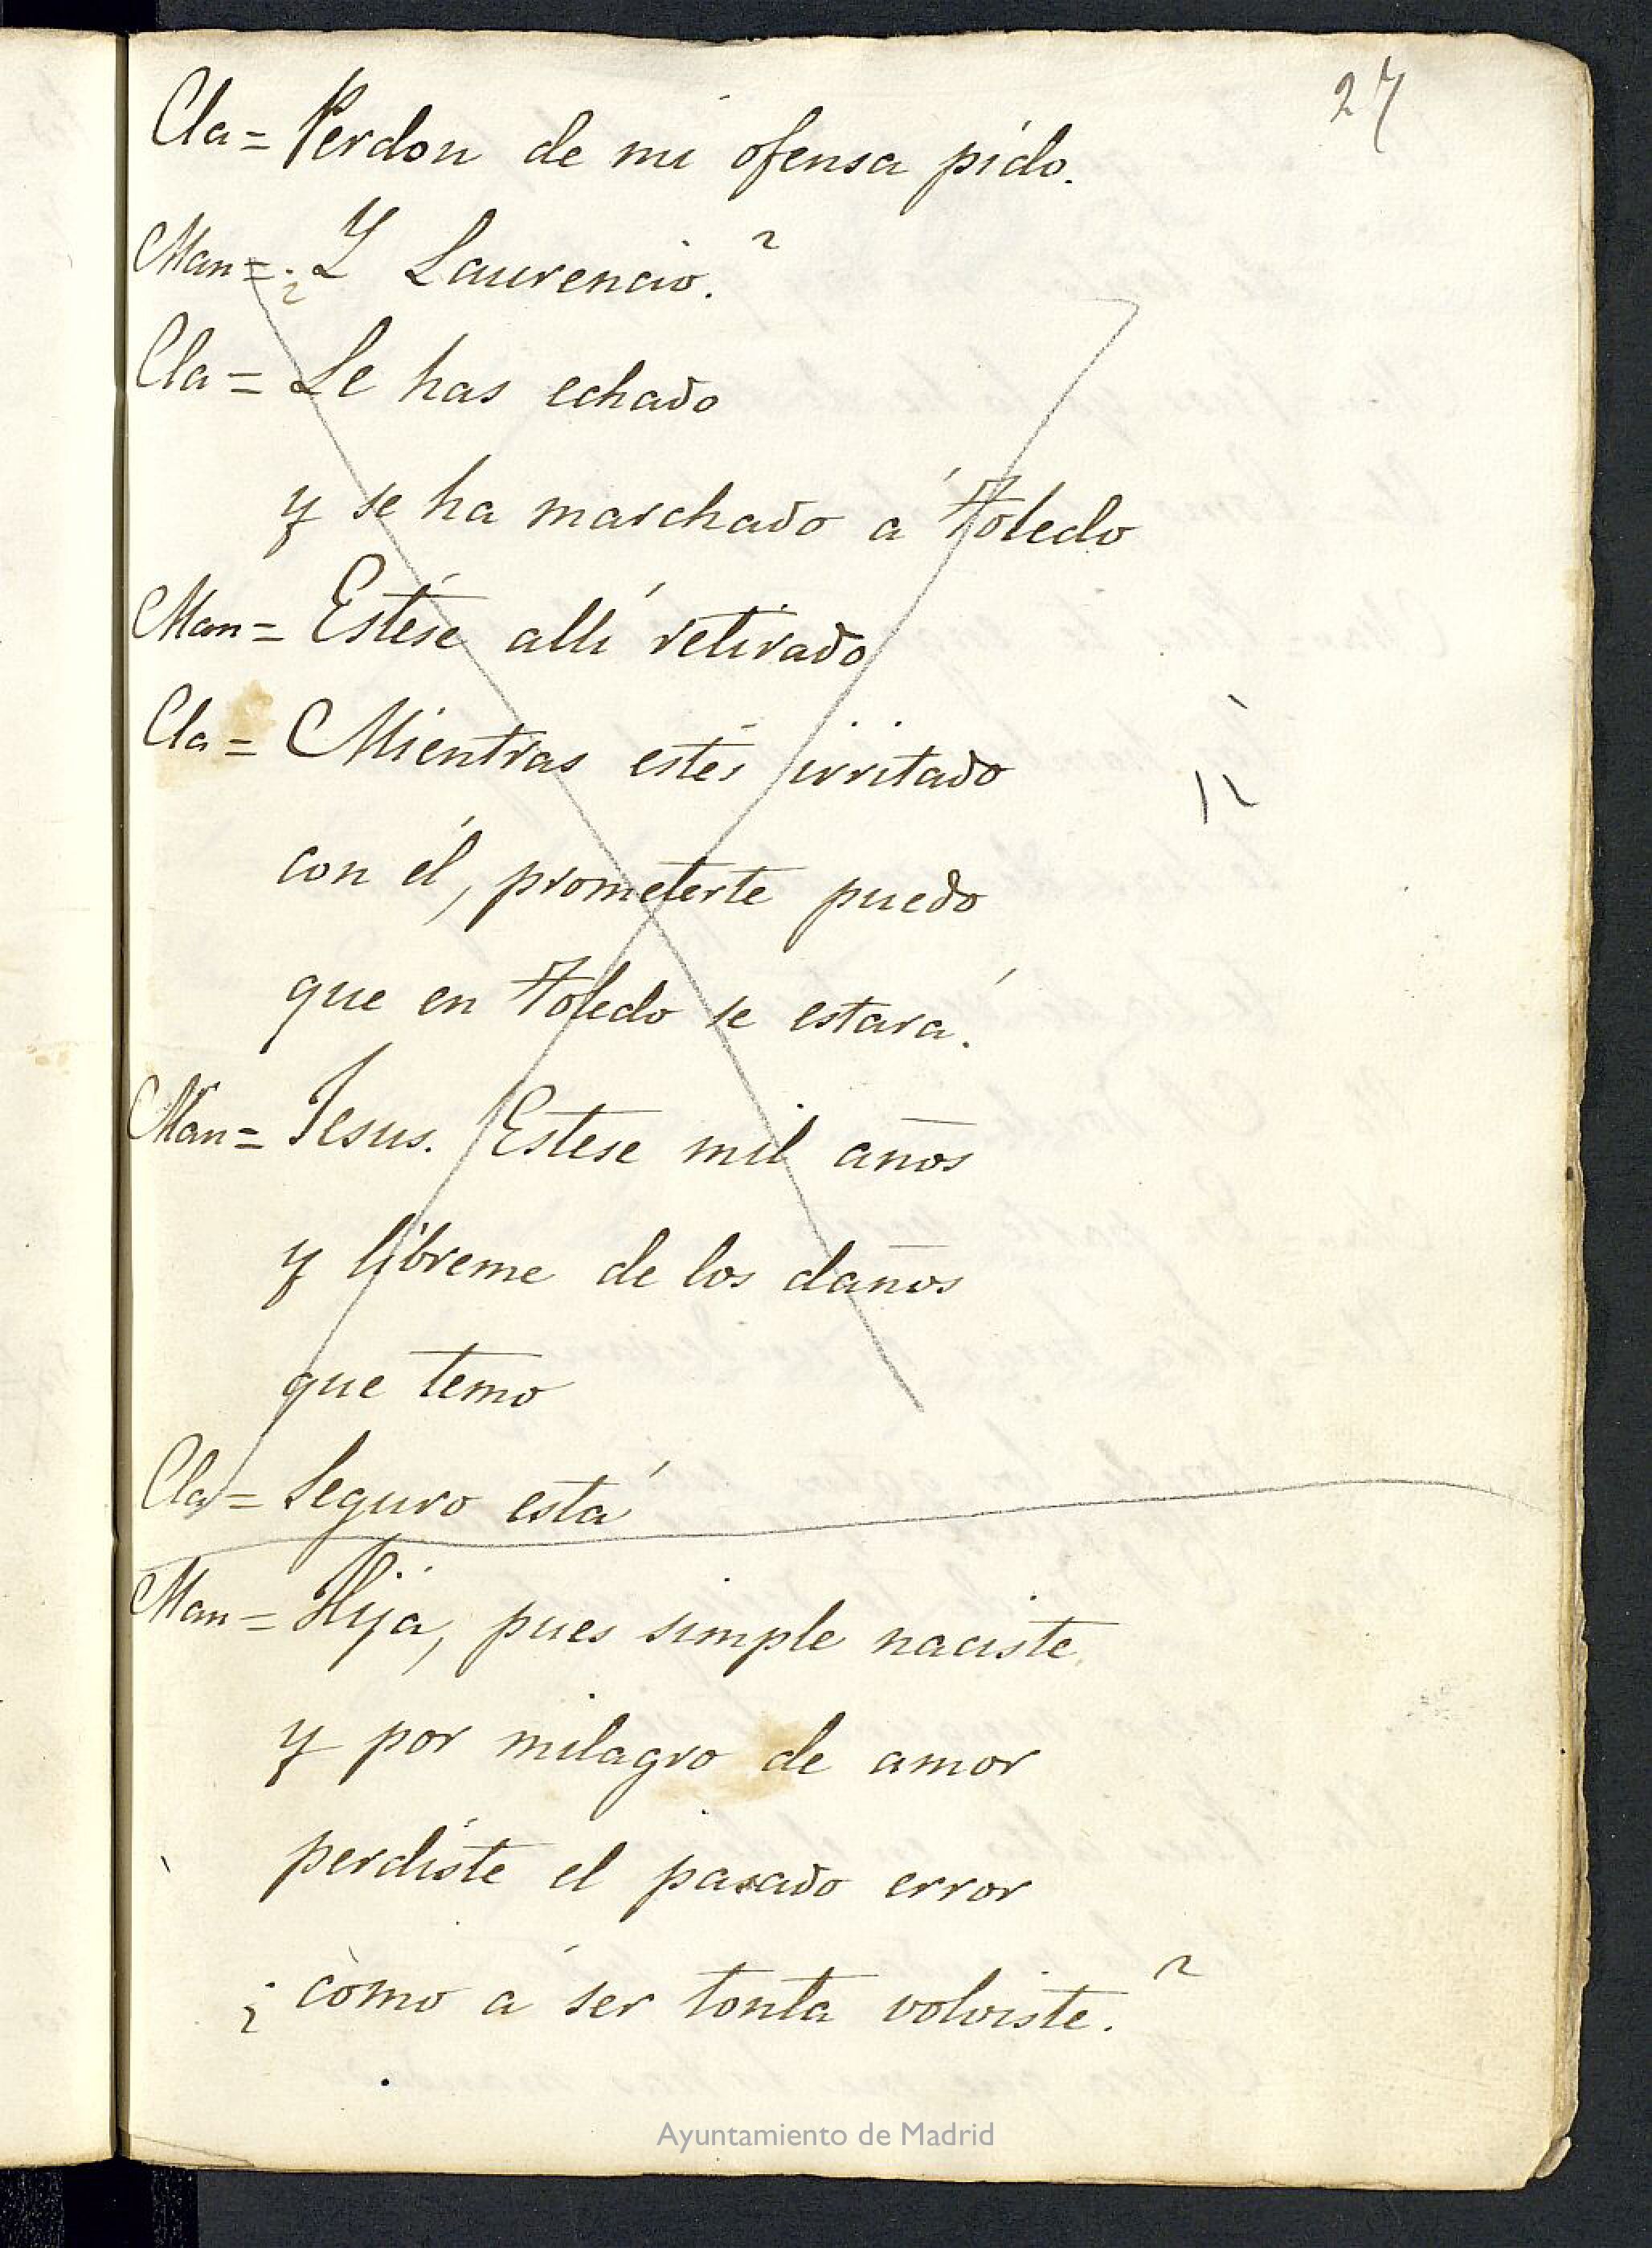 27
Cla = Perdon de mi ofensa pido.
Man = ¿Y Laurencio.?
Cla = Le has echado
y se ha marchado á Toledo
Man = Estése allí retirado
Cla = Mientras estés irritado
con él, prometerte puedo
que en Toledo se estará.
Man = Jesus. Estese mil años
y líbreme de los daños
que temo
Cla = Seguro está
Man = Hija, pues simple naciste
y por milagro de amor
perdiste el pasado error
¿còmo á ser tonta volviste.?
Ayuntamiento de Madrid